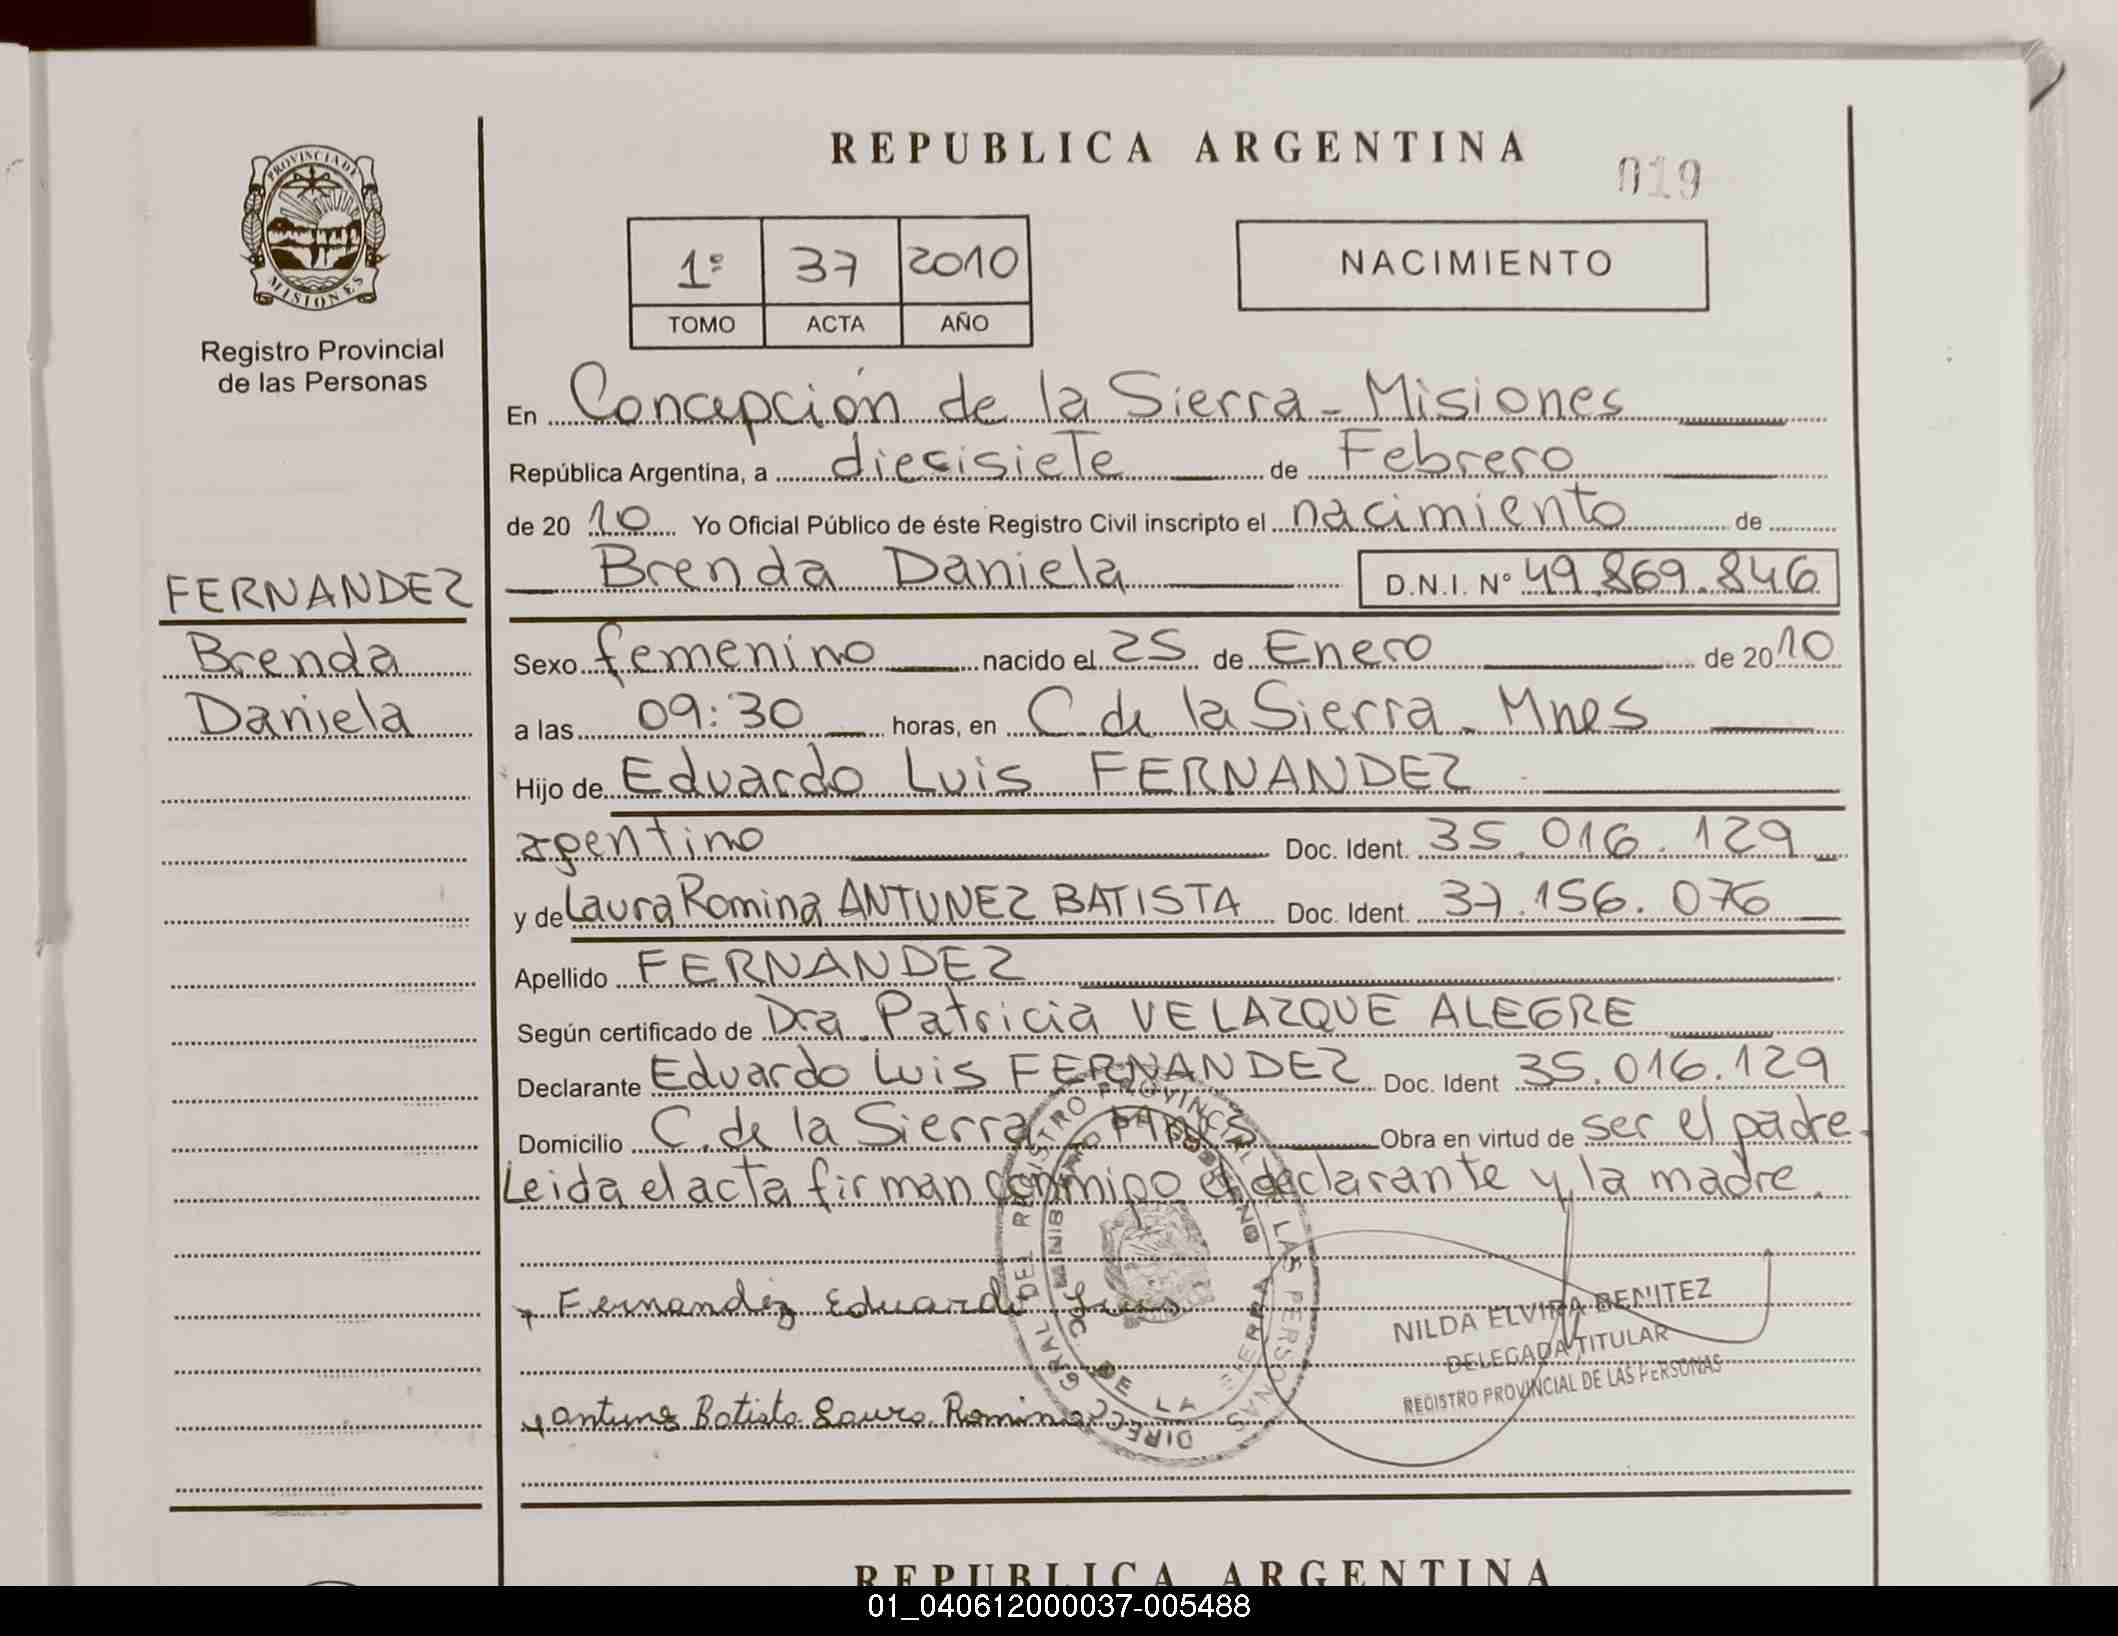 REPUBLICA ARGENTINA
019
PROVINCIA DE
MISIONES
Registro Provincial
de las Personas
1º 37 2010
TOMO ACTA AÑO
NACIMIENTO
En Concepción de la Sierra - Misiones
República Argentina, a diecisiete de Febrero
de 2010 Yo Oficial Público de éste Registro Civil inscripto el nacimiento de
Brenda Daniela D.N.I. Nº 49.869.846
FERNANDEZ
Brenda
Daniela
Sexo femenino nacido el 25 de Enero de 2010
a las 09:30 horas, en C de la Sierra. Mnes
Hijo de Eduardo Luis FERNANDEZ
argentino Doc. Ident. 35.016.129
y de Laura Romina ANTUNEZ BATISTA Doc. Ident. 37.156.076
Apellido FERNANDEZ
Según certificado de Dra Patricia VELAZQUE ALEGRE
Declarante Eduardo Luis FERNANDEZ Doc. Ident 35.016.129
Domicilio C. de la Sierra Mnes Obra en virtud de ser el padre.
Leida el acta firman conmigo el declarante y la madre.
Fernandez Eduardo Luis
Antunez Batista Laura Romina
DIRECC. GRAL DEL REGISTRO PROVINCIAL DE LAS PERSONAS
DE LA SIERRA
NILDA ELVIRA BENITEZ
DELEGADA TITULAR
REGISTRO PROVINCIAL DE LAS PERSONAS
REPUBLICA ARGENTINA
01_040612000037-005488